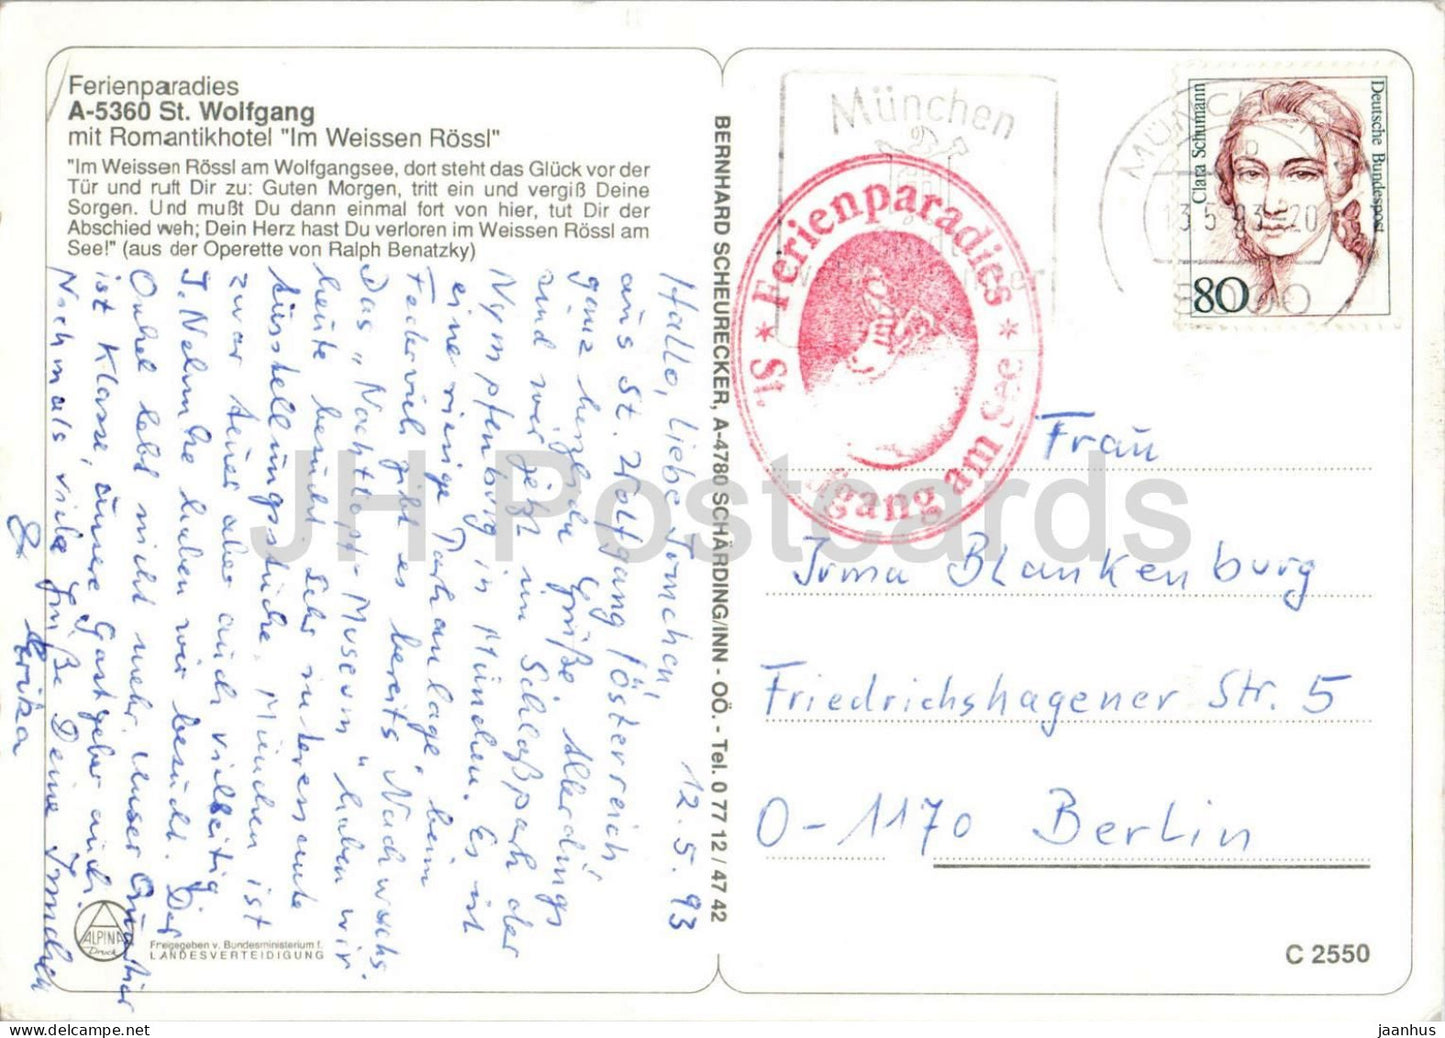 Ferienparadies
A-5360 St. Wolfgang
mit Romantikhotel "Im Weissen Rössl"
"Im Weissen Rössl am Wolfgangsee, dort steht das Glück vor der
Tür und ruft Dir zu: Guten Morgen, tritt ein und vergiß Deine
Sorgen. Und mußt Du dann einmal fort von hier, tut Dir der
Abschied weh; Dein Herz hast Du verloren im Weissen Rössl am
See!" (aus der Operette von Ralph Benatzky)
12.5.93
Hallo, liebe Irmchen,
aus St. Wolfgang/Österreich
ganz herzliche Grüße. Allerdings
sind wir jetzt im Schloßpark der
Nymphenburg in München. Es ist
eine riesige Parkanlage, beim
Federvieh gibt es bereits Nachwuchs.
Das "Nachttopf-Museum" haben wir
heute besucht. Sehr interessante
Ausstellungsstücke. München ist
zwar teuer aber auch vielseitig
J. Nehmke haben wir besucht. Der
Onkel lebt nicht mehr. Unser Quartier
ist Klasse, unsere Gastgeber auch.
Nochmals viele Grüße Deine
&
ALPINA
Druck
Freigegeben v. Bundesministerium f.
LANDESVERTEIDIGUNG
BERNHARD SCHEURECKER, A-4780 SCHÄRDING/INN - OÖ. - Tel. 0 77 12 / 47 42
München
Ferienparadies
St. Wolfgang am See
MÜNCHEN
13.5.93-20
8000
Clara Schumann
Deutsche Bundespost
80
Frau
Irma Blankenburg
Friedrichshagener Str. 5
O-1170 Berlin
C 2550
JH Postcards
hipstamp.com/store/jhpostcards
jaanhus